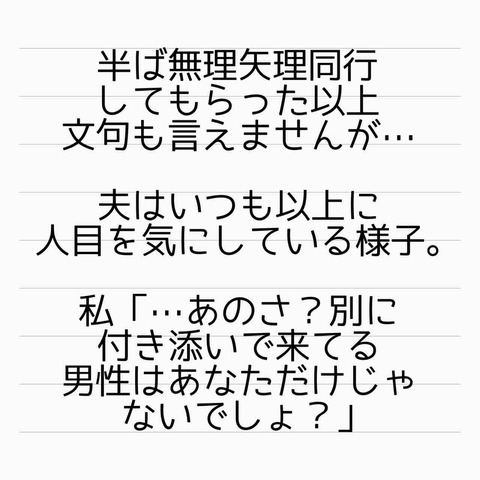 半ば無理矢理同行
してもらった以上
文句も言えませんが…
夫はいつも以上に
人目を気にしている様子。
私「…あのさ？別に
付き添いで来てる
男性はあなただけじゃ
ないでしょ？」